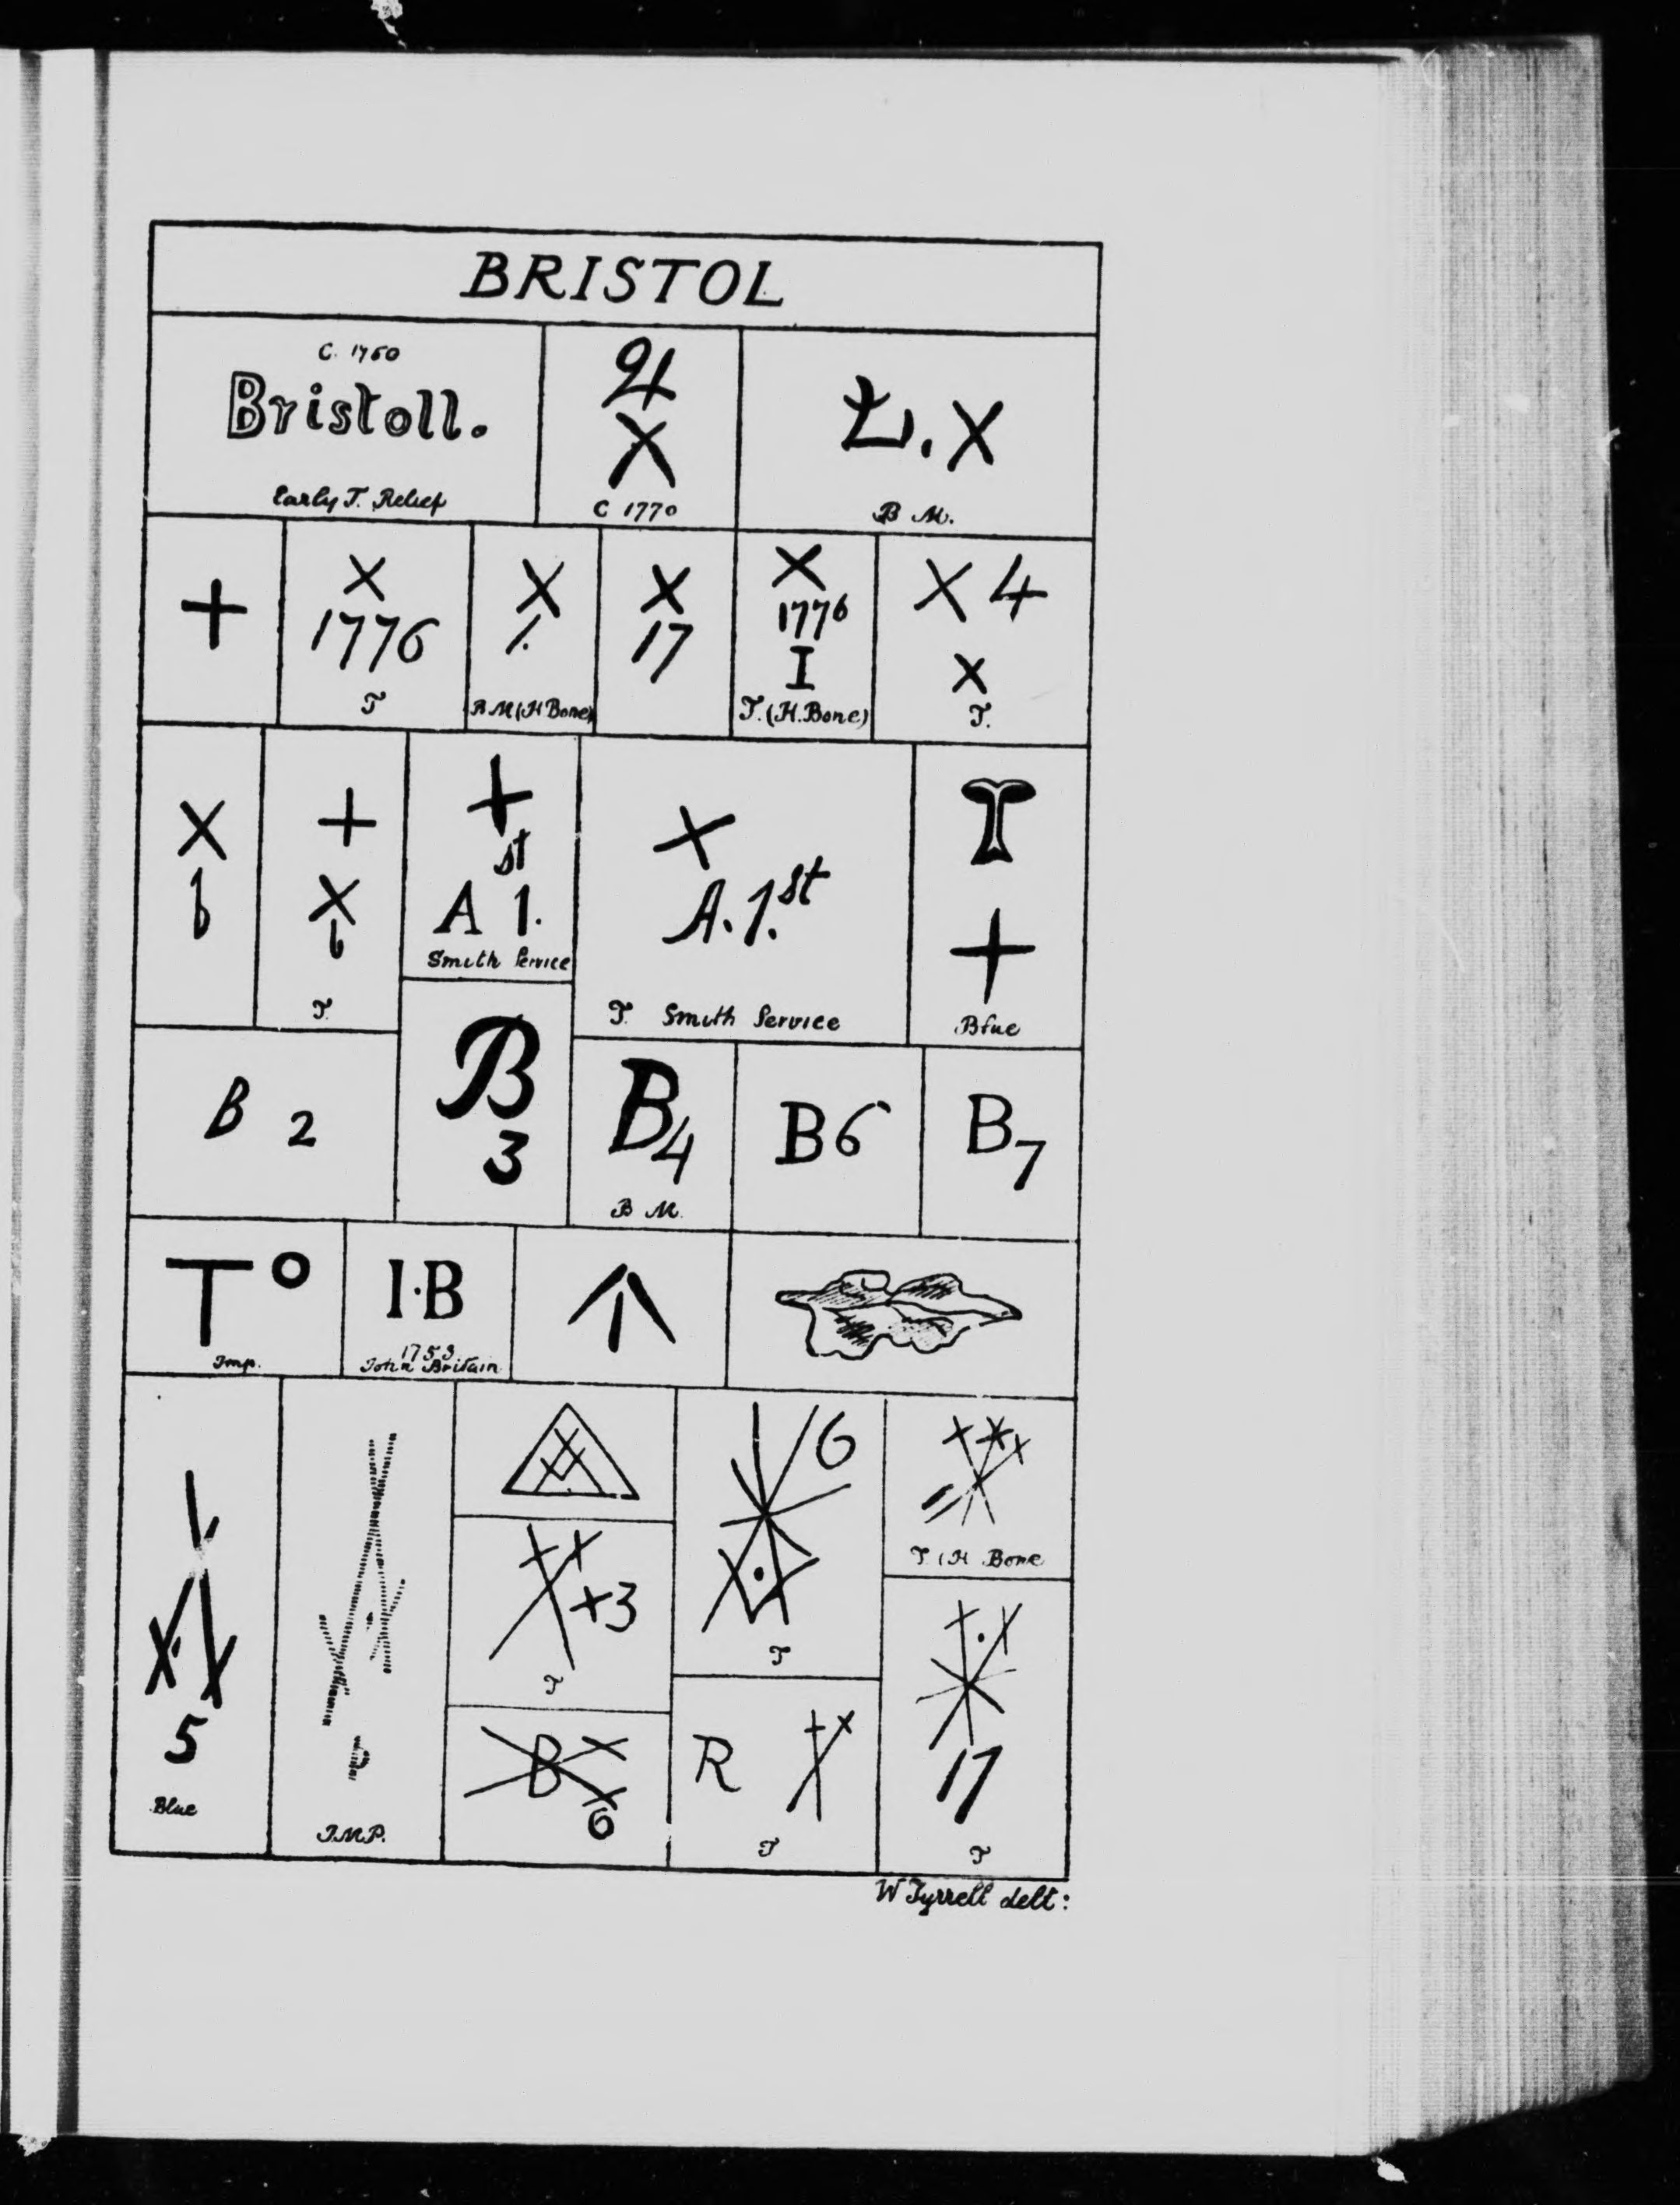 BRISTOL
C. 1750
Bristoll.
Early T. Relief
X
C 1770
. X
B M.
+
X
1776
T
X
1.
B M (H Bone)
X
17
X
1776
I
T. (H. Bone)
X 4
X
T.
X
b
+
X
b
T.
+
st
A 1.
Smith Service
X
A. 1.st
T. Smith Service
T
+
Blue
B 2
B
3
B4
B M.
B6
B7
To
Imp.
I·B
1753
John Britain
5
Blue
b
IMP.
3
T
B
6
6
T
R
T
T. (H Bone
17
T
W Tyrrell delt: